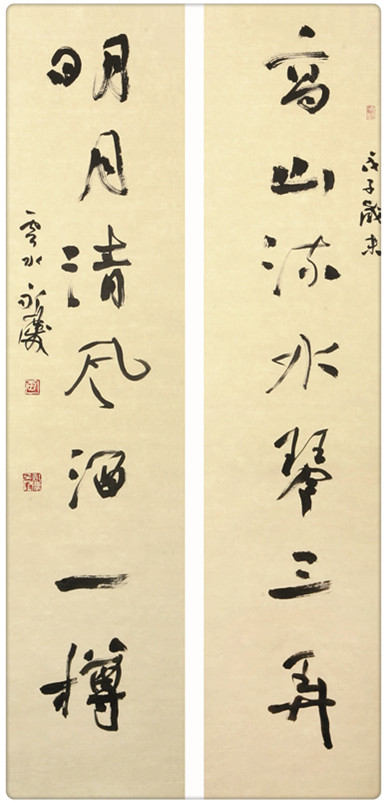 戊子歲末
高山流水琴三弄
明月清风酒一樽
雲水